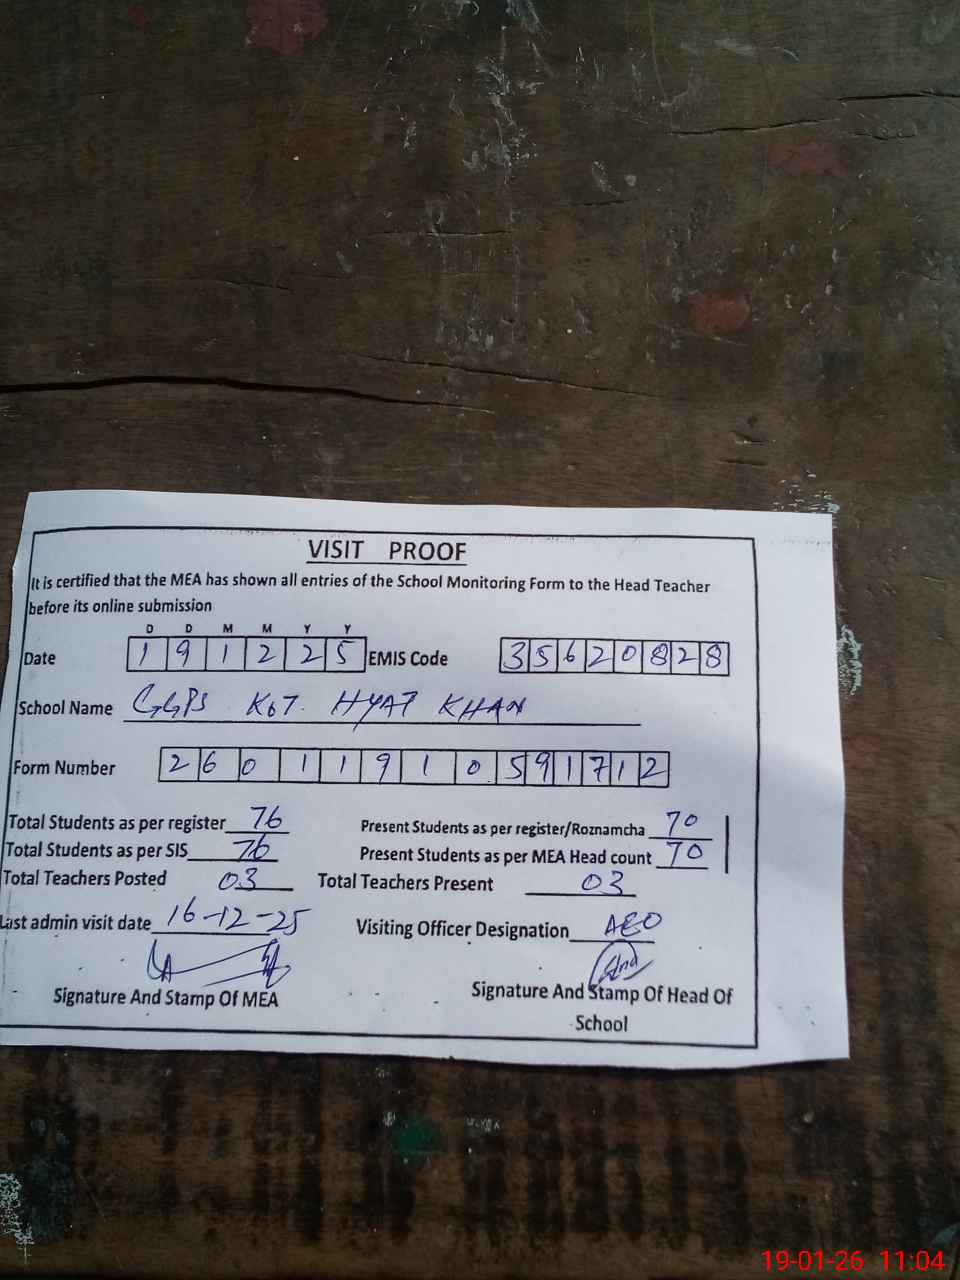 VISIT PROOF
It is certified that the MEA has shown all entries of the School Monitoring Form to the Head Teacher
before its online submission
D D M M Y Y
Date 1 9 1 2 2 5 EMIS Code 3 5 6 2 0 8 2 8
School Name GGPS KOT. HYAT KHAN
Form Number 2 6 0 1 1 9 1 0 5 9 1 7 1 2
Total Students as per register 76 Present Students as per register/Roznamcha 70
Total Students as per SIS 76 Present Students as per MEA Head count 70
Total Teachers Posted 03 Total Teachers Present 03
Last admin visit date 16-12-25 Visiting Officer Designation AEO
Signature And Stamp Of MEA Signature And Stamp Of Head Of
School
19-01-26 11:04